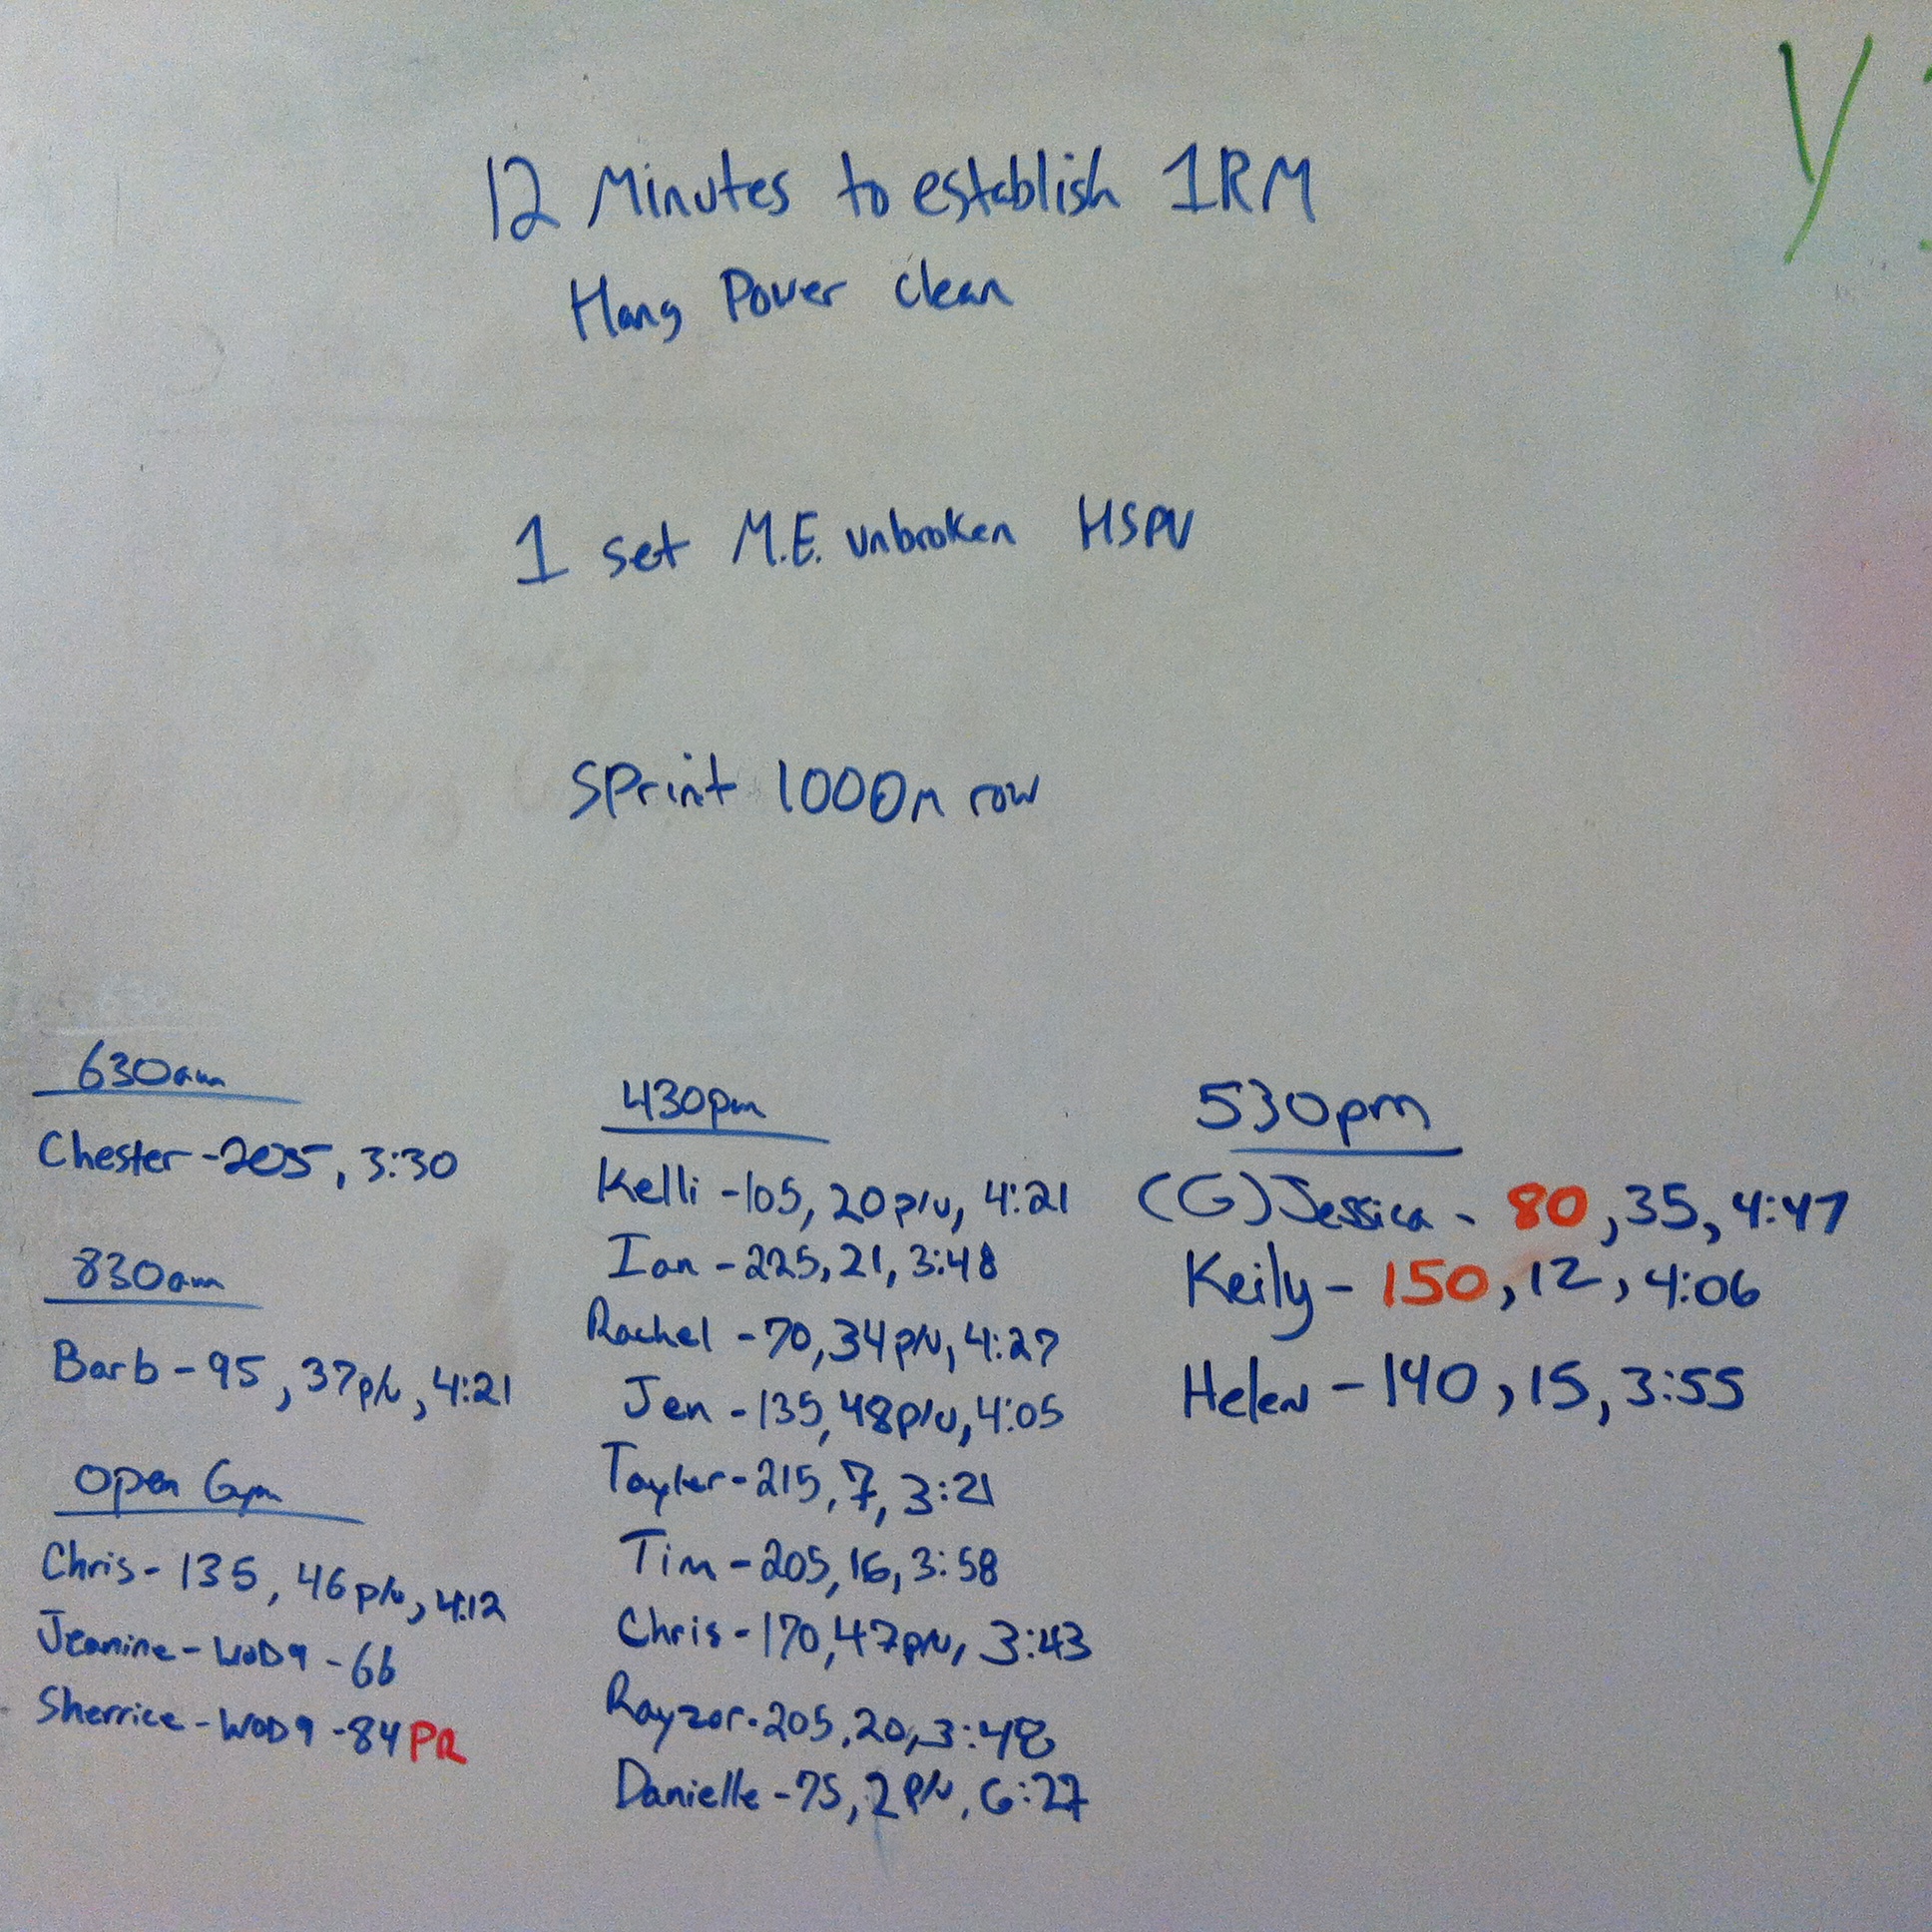 12 Minutes to establish 1RM
Hang Power Clean
1 set M.E. unbroken HSPU
Sprint 1000m row
630am
Chester - 205, 3:30
830am
Barb - 95, 37p/u, 4:21
Open Gym
Chris - 135, 46p/u, 4:12
Jeanine - WOD9 - 66
Sherrice - WOD9 - 84 PR
430pm
Kelli - 105, 20p/u, 4:21
Ian - 225, 21, 3:48
Rachel - 70, 34p/u, 4:27
Jen - 135, 48p/u, 4:05
Tayler - 215, 7, 3:21
Tim - 205, 16, 3:58
Chris - 170, 47p/u, 3:43
Rayzor - 205, 20, 3:48
Danielle - 75, 2p/u, 6:27
530pm
(G) Jessica - 80, 35, 4:47
Keily - 150, 12, 4:06
Helen - 140, 15, 3:55